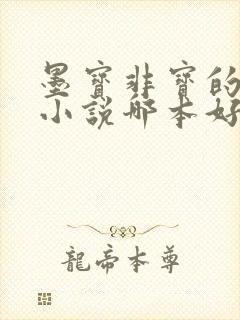 墨寶非寶的
小說哪本好
龍帝本尊